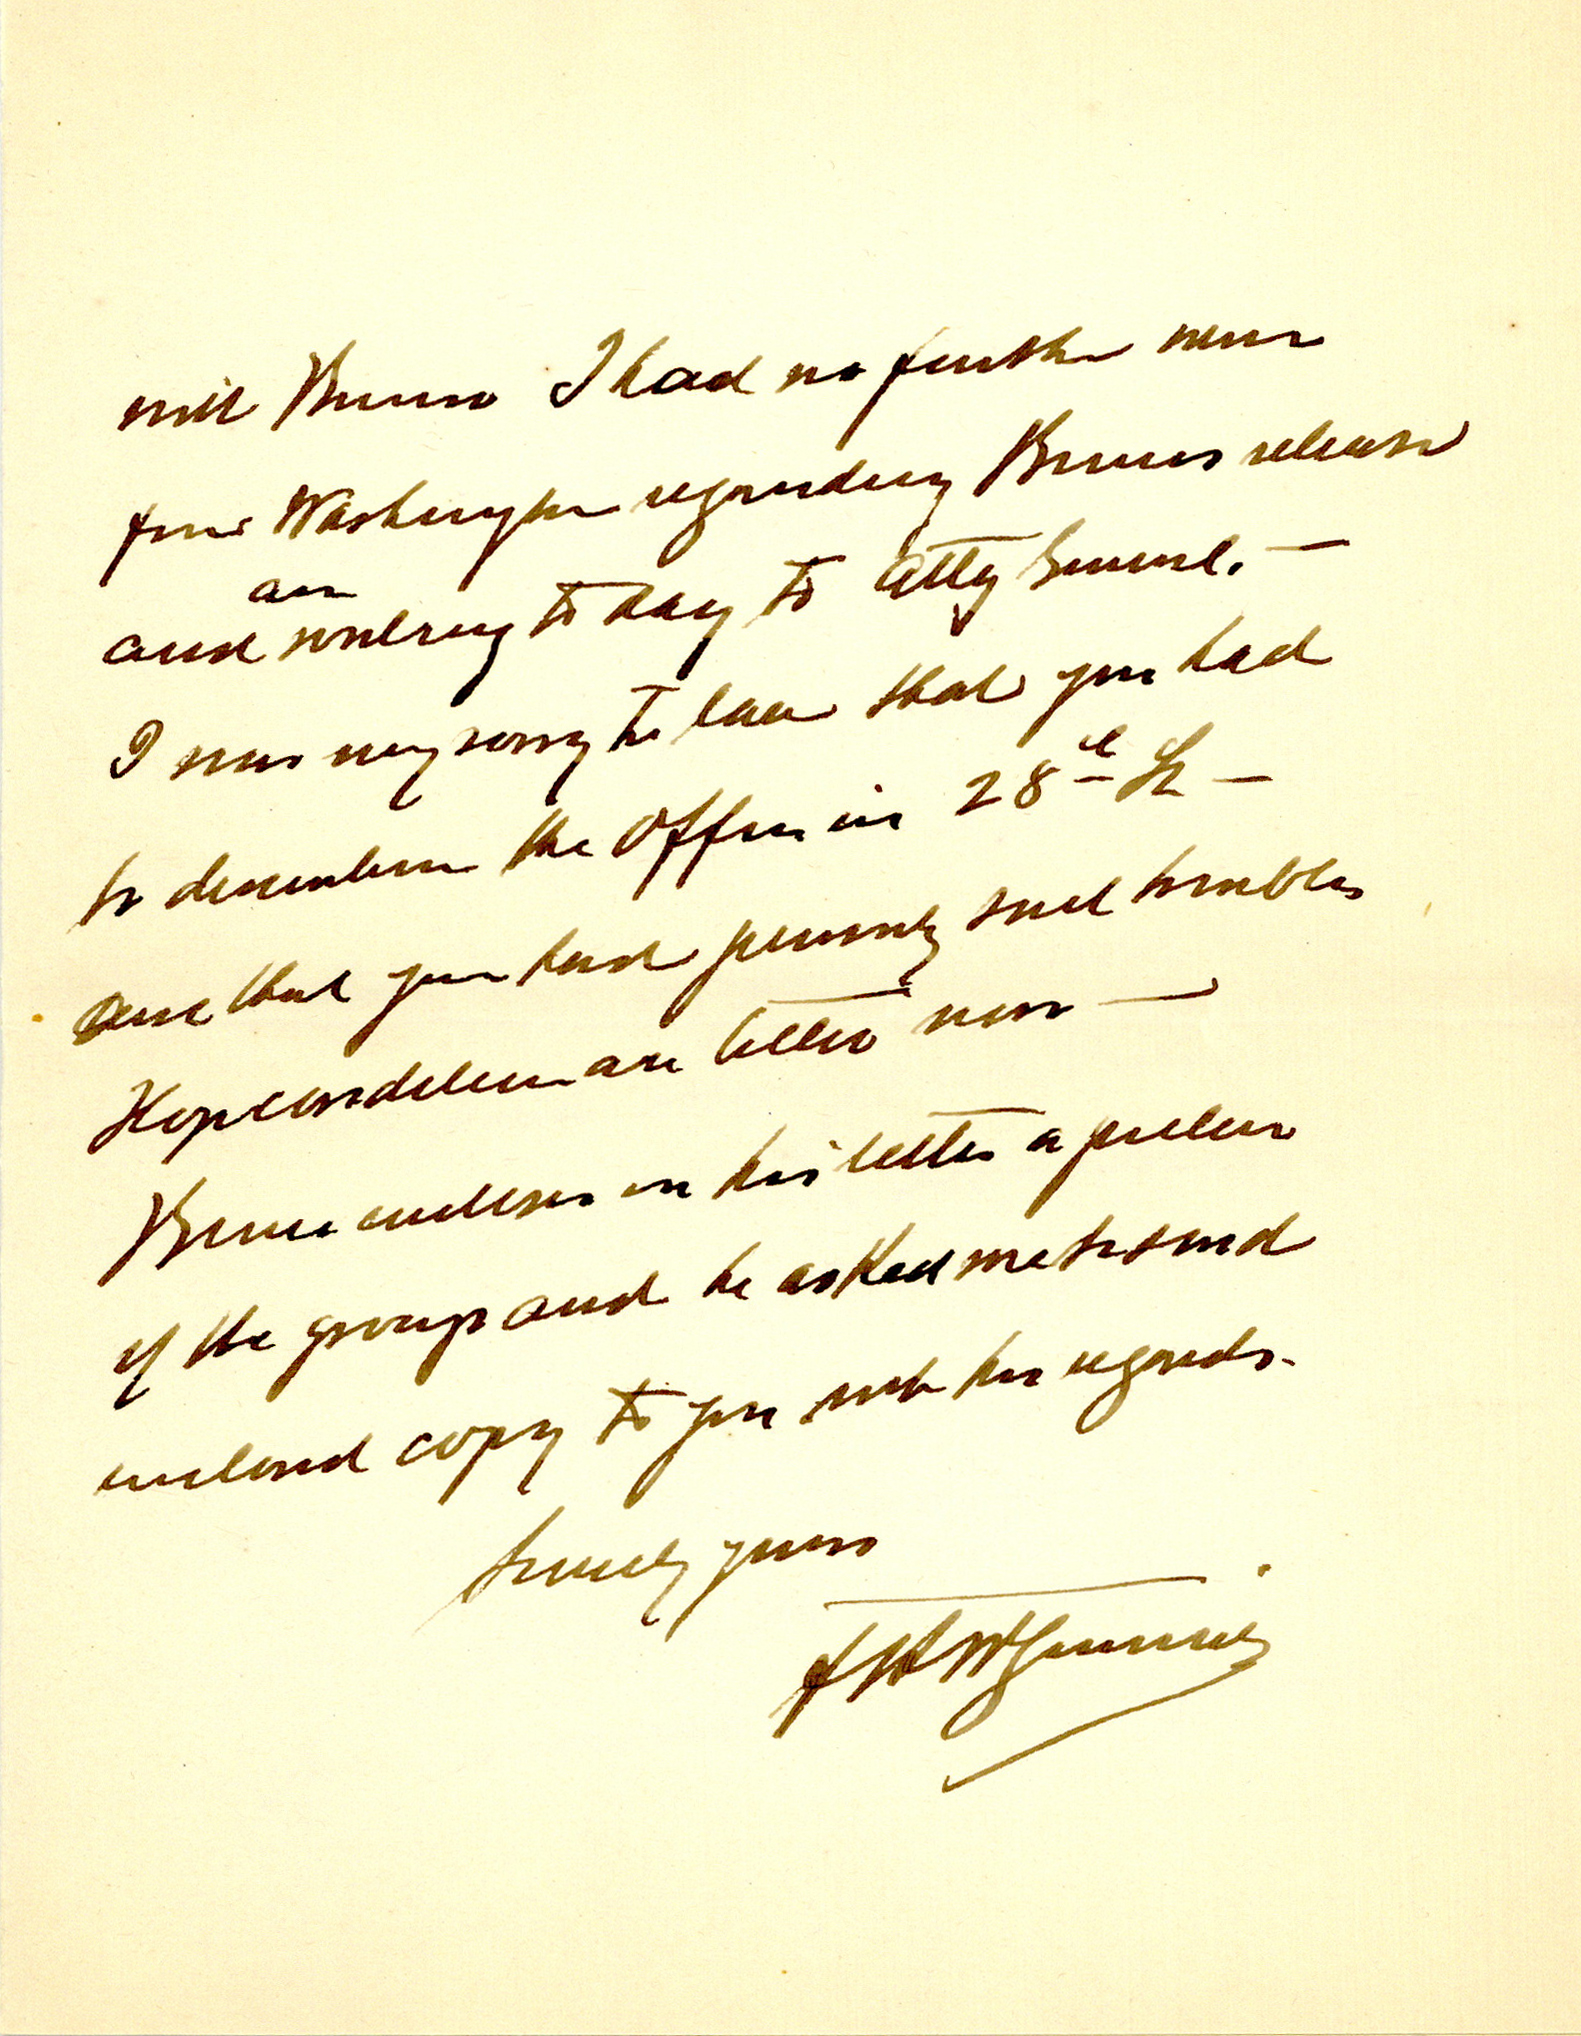 with Bruno I had no further news
from Washington regarding Brunos release
am
and writing to day to Atty General. —
I was very sorry to hear that you had
to discontinue the Office in 28th St —
and that you had personly such troubles
Hope conditions are better now —
Bruno encloses in his letter a picture
of the group and he asked me to send
enclosed copy to you with his regards.
truely yours